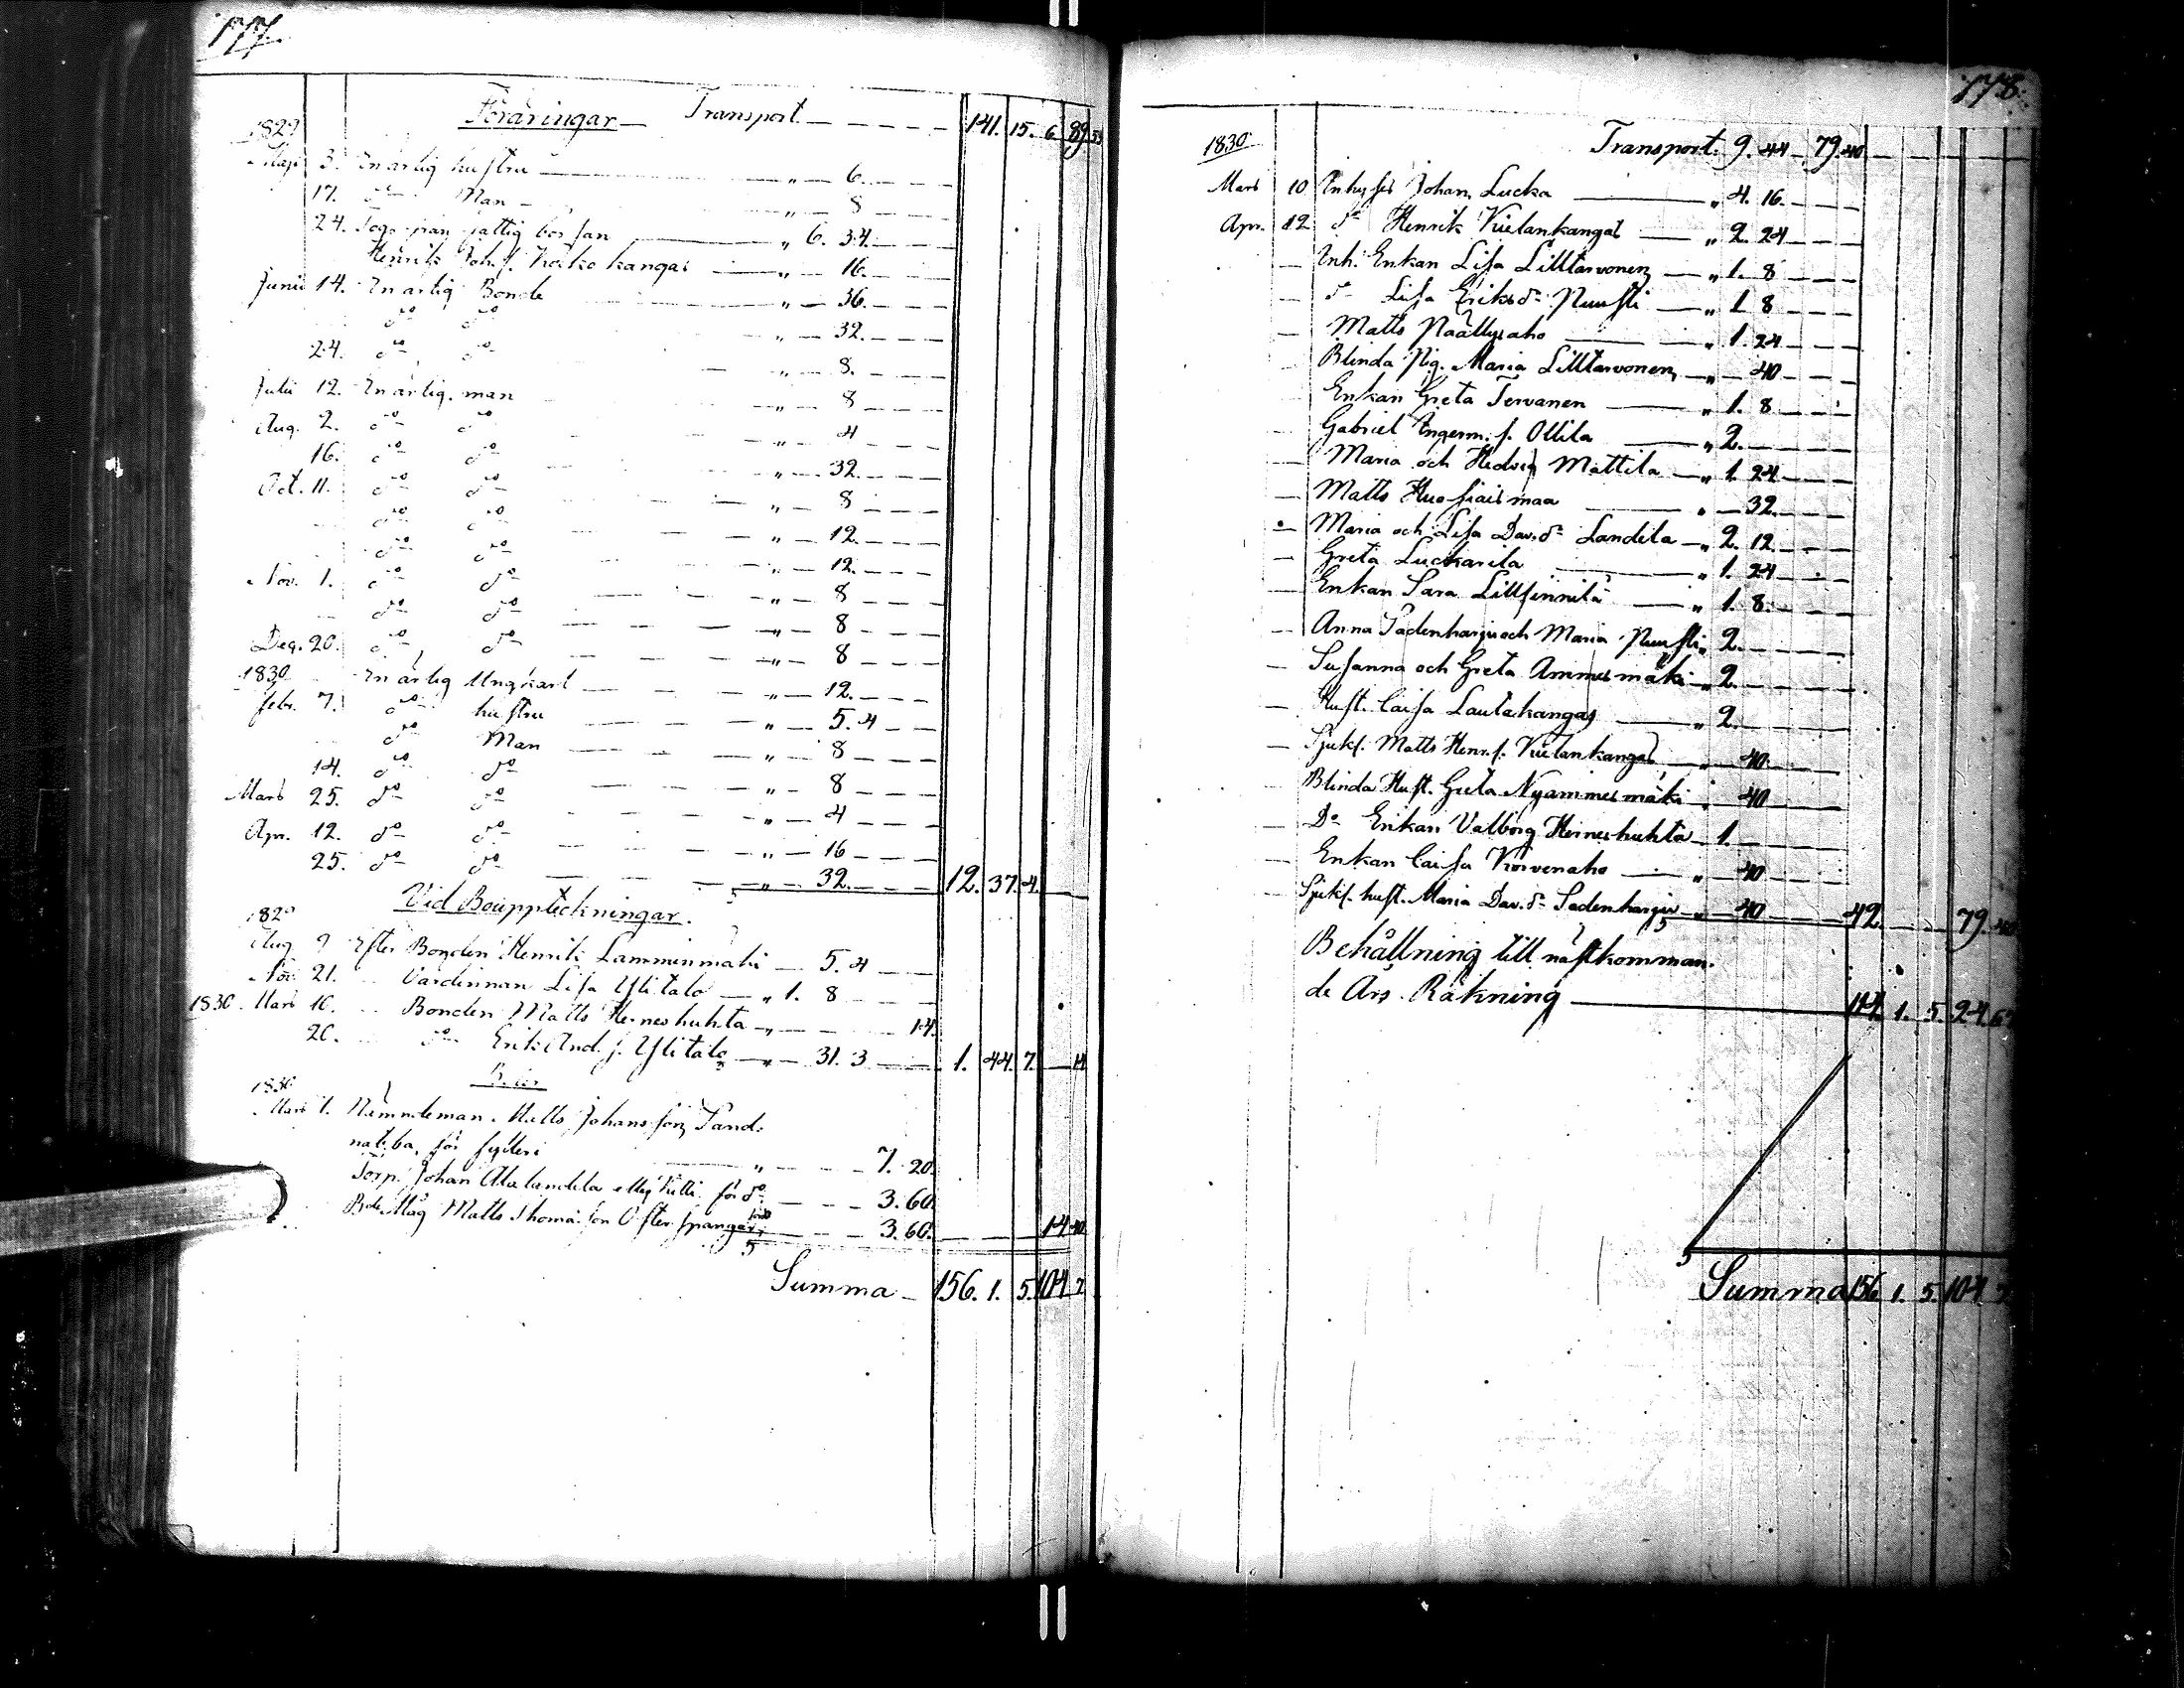 177.
Föräringar — Transport — 141. 15. 6 89.
1829
Maji 3. En ärlig hustru — " — 6.
17. do Man — " — 8
24. Togs från fattig börsan — " 6. 34.
Henrik Joh.s. Koskokangas — " — 16.
Junii 14. En ärlig Bonde — " — 36.
do do — " — 32.
24. do do — " — 8.
Julii 12. En ärlig man — " — 8
Aug. 2. do do — " — 4
16. do do — " — 32.
Oct. 11. do do — " — 8
do do — " — 12.
do do — " — 12.
Nov. 1. do do — " — 8
do do — " — 8
Dec. 20. do do — " — 8
1830 En ärlig Ungkarl — " — 12.
febr. 7. do hustru — " — 5. 4
do Man — " — 8
14. do do — " — 8
Mars 25. do do — " — 4
Apr. 12. do do — " — 16
25. do do — " — 32. 12. 37. 4.
Vid Bouppteckningar.
1829
Aug 9 Efter Bonden Henrik Lamminmäki — 5. 4
Nov. 21. Värdinnan Lisa Ylitalo — " 1. 8
1830. Mars 10. Bonden Matts Heineshuhta — " — 14.
20. do Erik And. s. Ylitalo — " — 31. 3 1. 44. 7. 14
Böter
1830
Mars 1. Nämndeman Matts Johansson Sand-
natiba, för fylleri — " — 7. 20.
Torp. Johan Alalandela för do — 3. 60.
Matts Thomasson — 3. 60. 14 40
Summa — 156. 1. 5. 104 7
178.
1830 Transport. 9. 44 — 79. 40
Mars 10 Inhyses Johan Lucka — " 4. 16.
Apr. 12 do Henrik Kielankangas — " 2. 24
Inh. Enkan Lisa Lilltarvonen — " 1. 8
do Lisa Eriksdr — " 1 8
Matts Näätlysaho — " 1. 24
Blinda Pig. Maria Lilltarvonen — " — 40
Enkan Greta Tervanen — " 1. 8
Gabriel Ingerm. s. Ollila — " 2.
Maria och Hedvig Mattila — " 1. 24
Matts Huosiaismaa — " — 32.
Maria och Lisa Dav.dr Landela — " 2. 12.
Greta Luckarila — " 1. 24
Enkan Sara Lillsinnilä — " 1. 8.
Anna Sadenharju och Maria — " 2.
Susanna och Greta Ammesmäki — " 2.
Hust. Caisa Lautakangas — " 2.
Sjukl. Matts Henr. s. Kielankangas — " 40.
Blinda Hust. Greta Nyammesmäki " 40
Do Enkan Valborg Heineshuhta — 1.
Enkan Caisa Korvenaho — " 40
Sjukl. hust. Maria Dav.dr Sadenharju — " — 40 42. 79. 40
Behållning till nästkomman-
de Års Räkning — 114. 1. 5. 24. 67
Summa 156 1. 5. 104 7